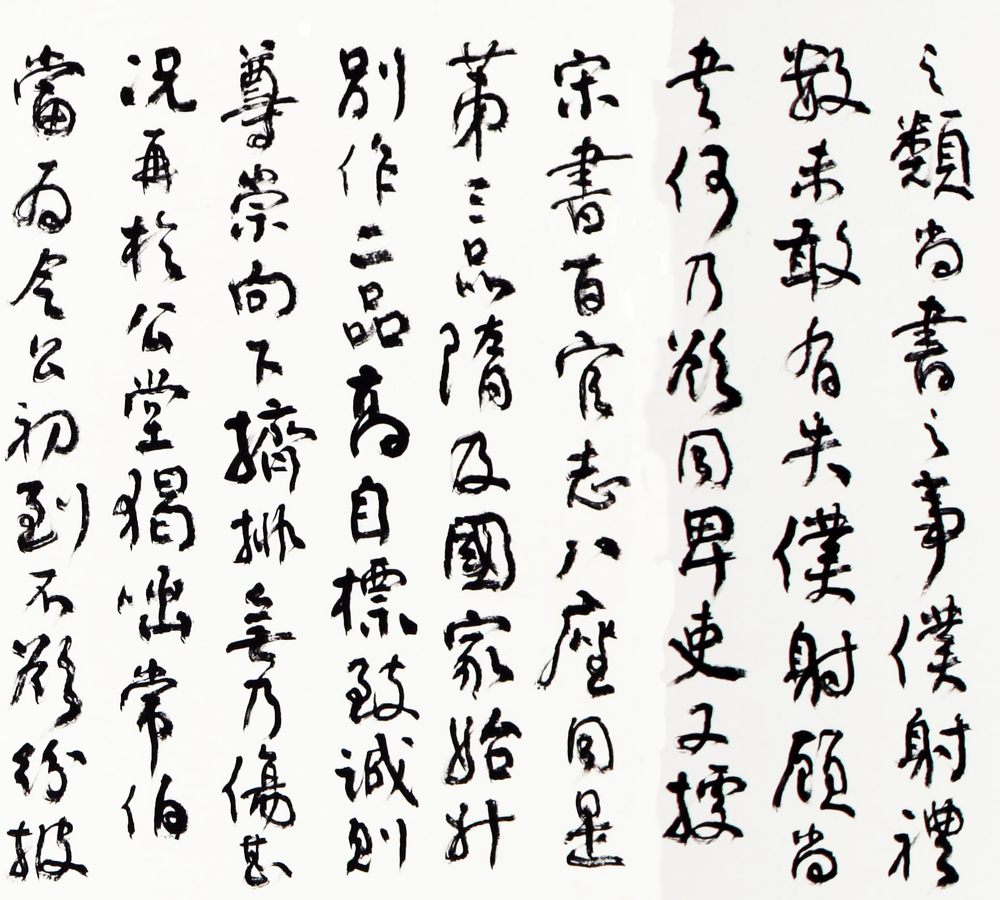 之類尚書之事僕射禮
數未敢有失僕射顧尚
書何乃欲同卑吏又據
宋書百官志八座同是
第三品隋及國家始升
別作二品高自標致誠則
尊崇向下擠排無乃傷甚
况再於公堂猲咄常伯
當為令公初到不欲紛披